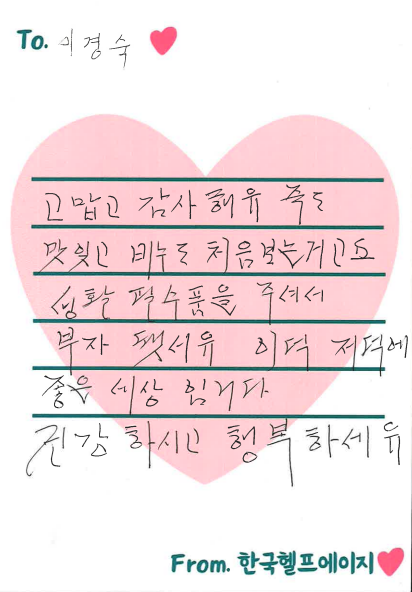 To. 이경숙
고맙고 감사해유 죽도
맛잇고 비누도 처음보는거고요
생활 필수품을 주셔서
부자 됏서유 이덕 저덕에
좋은 세상 임니다
건강하시고 행복하세유
From. 한국헬프에이지